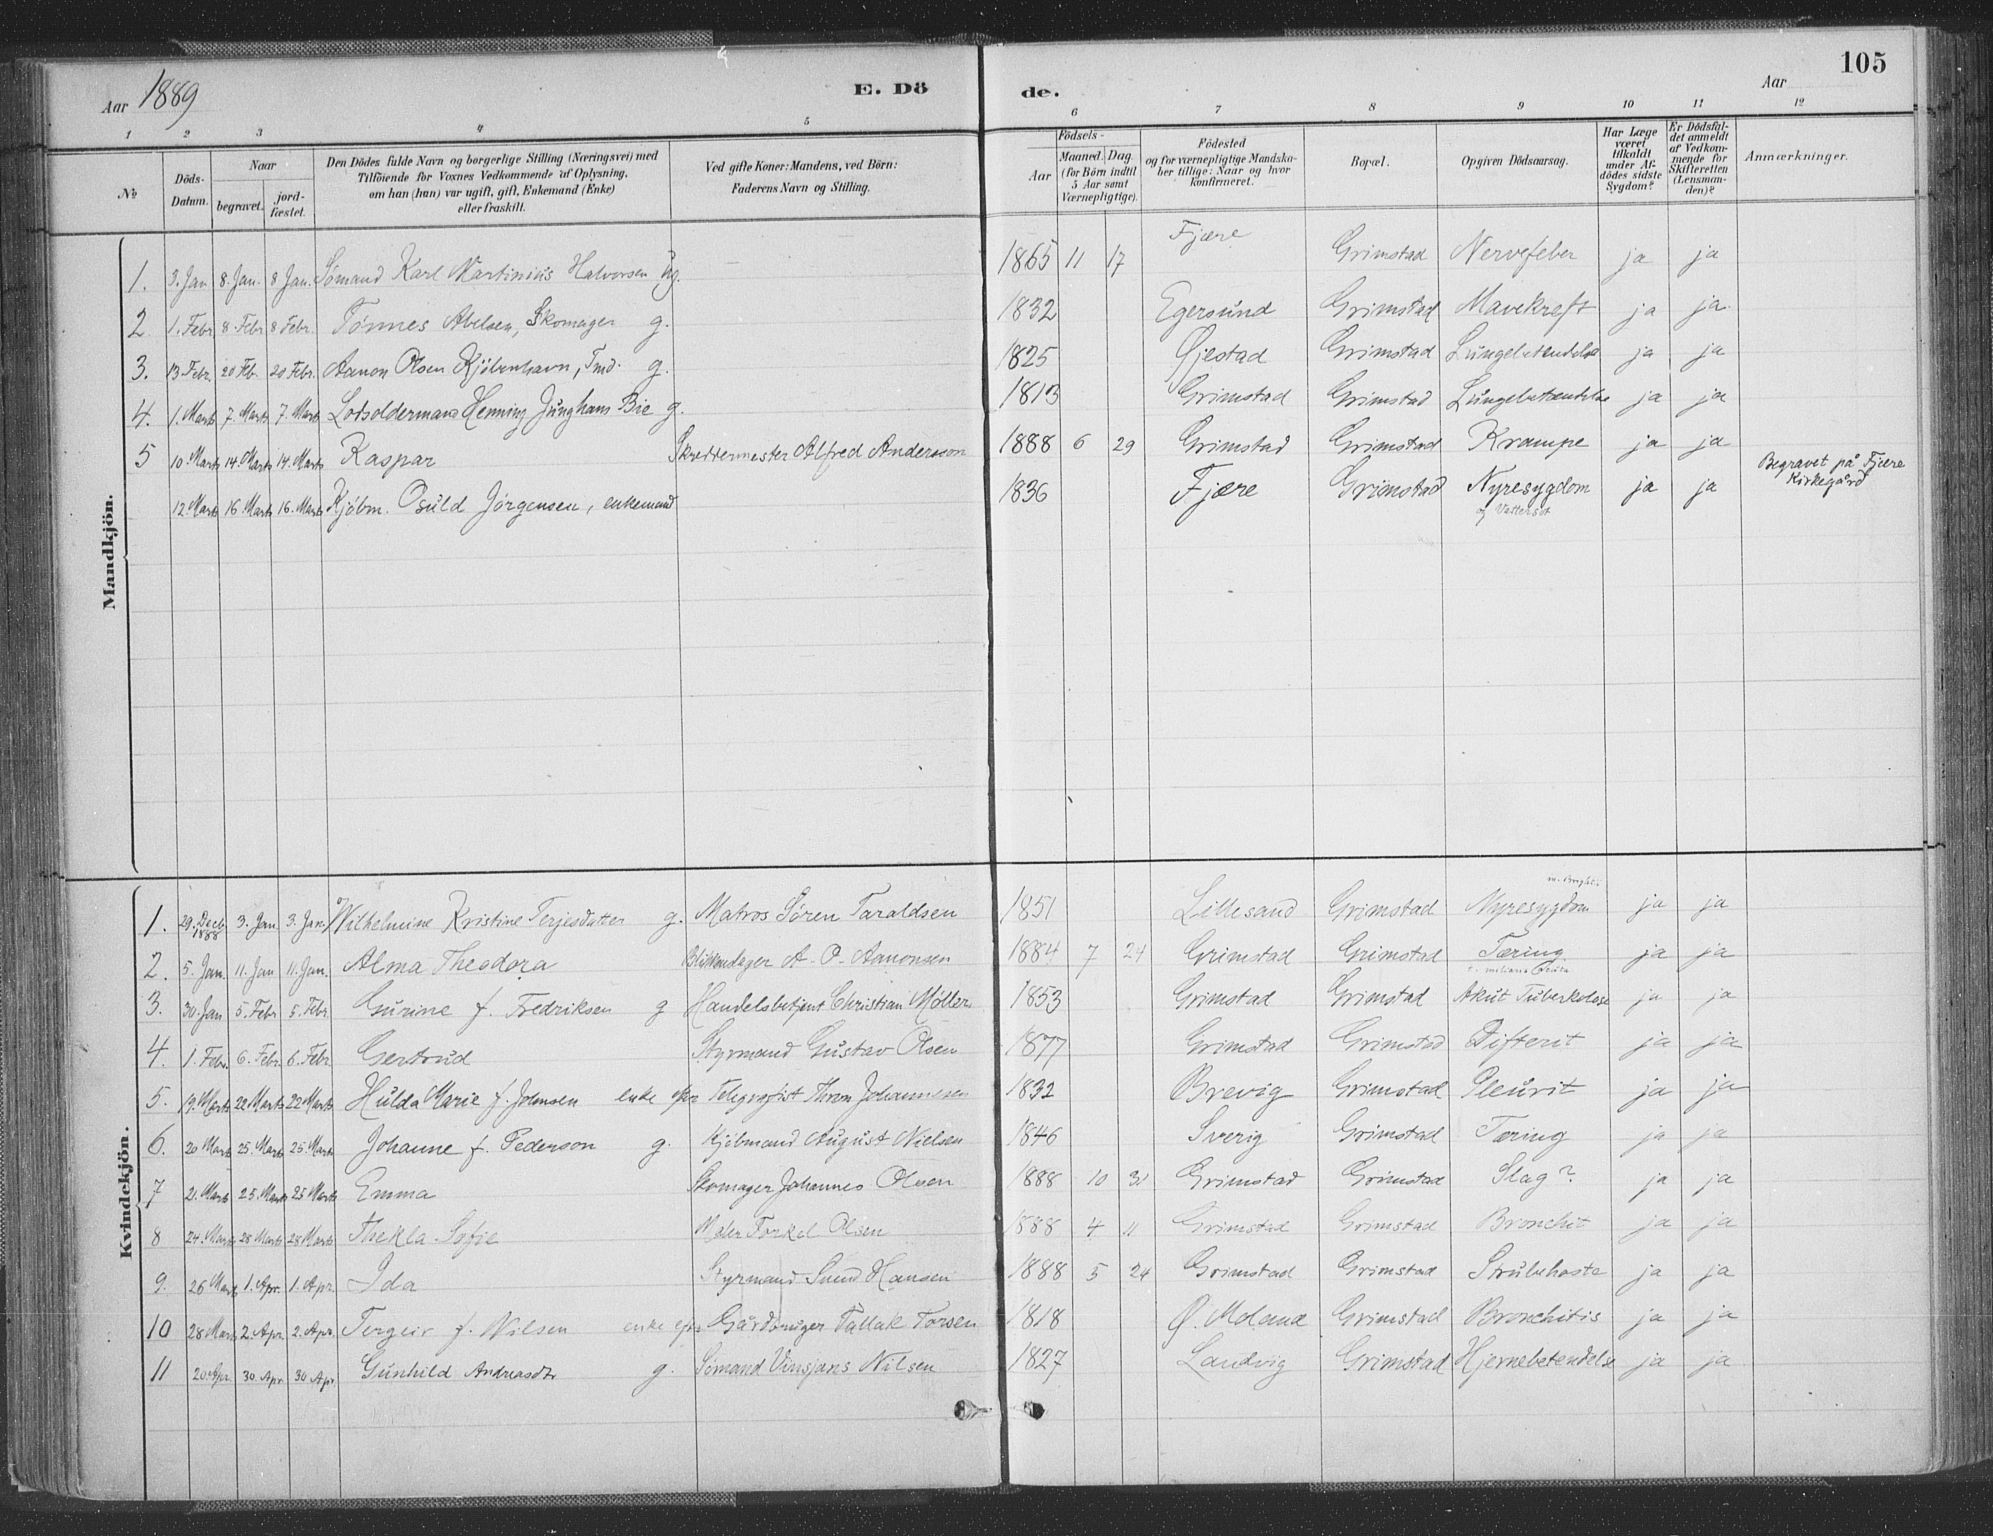 Aar 1889
E. Dö
de.
Aar
105
1 2 3 4 5 6 7 8 9 10 11 12
No
Döds-Datum.
Naar
begravet.
jord-fæstet.
Den Dödes fulde Navn og borgerlige Stilling (Næringsvei) med
Tilföiende for Voxnes Vedkommende af Oplysning,
om han (hun) var ugift, gift, Enkemand (Enke)
eller fraskilt.
Ved gifte Koner: Mandens, ved Börn:
Faderens Navn og Stilling.
Födsels-
Aar
Maaned. Dag
(for Börn indtil
5 Aar samt
Værnepligtige).
Födested
og for værnepligtige Mandska-
ber tillige: Naar og hvor
konfirmeret.
Bopæl.
Opgiven Dödsaarsag.
Har Læge
været
tilkaldt
under Af-
dödes sidste
Sygdom?
Er Dödsfal-
det anmeldt
af Vedkom-
mende for
Skifteretten
(Lensman-
den)?
Anmærkninger.
Mandkjön.
1. 3. Jan 8. Jan. 8 Jan. Sømand Karl Martinius Halvorsen ug. 1865 11 17 Fjære Grimstad Nervefeber ja ja
2 1. Febr 8. Febr 8 Febr. Tønnes Abelsen, Skomager g. 1832 Egersund Grimstad Mavekreft ja ja
3. 13 Febr. 20 Feb. 20 Febr. Aanon Olsen Kjøbenhavn, Tmd. g. 1825 Øjestad Grimstad Lungebetændelse ja ja
4. 1. Marts 7. Marts 7. Marts Lodsoldermand Henning Junghans Bie g. 1813 Grimstad Grimstad Lungebetændelse ja ja
5 10. Marts 14. Marts 14. Marts Kaspar Skreddermester Alfred Anderson 1888 6 29 Grimstad Grimstad Krampe ja ja
12 Marts 16 Marts 16. Marts Kjøbm. Osuld Jørgensen, enkemand 1836 Fjære Grimstad Nyresygdom og Vattersot ja ja Begravet på Fjære Kirkegård
Kvindekjön.
1. 29. Decb 1888 3. Jan 3. Jan. Wilhelmine Kristine Terjesdatter g. Matros Søren Taraldsen 1851 Lillesand Grimstad m. Brightii Nyresygdom ja ja
2. 5. Jan. 11. Jan 11. Jan. Alma Theodora Blikkenslager A. O. Aanonsen 1884 7 24 Grimstad Grimstad Tæring ja ja
3. 30. Jan 5. Febr 5. Febr. Gurine f. Fredriksen g Handelsbetjent Christian Møller 1853 Grimstad Grimstad Akut Tuberkulose ja ja
4. 1. Febr. 6. Febr 6. Febr Gertrud Styrmand Gustav Olsen 1877 Grimstad Grimstad Difterit ja ja
5. 19. Marts 22 Marts 22 Marts Hulda Marie f. Johnsen enke efter Telegrafist Thron Johannesen 1832 Brevig Grimstad Pleurit ja ja
6. 20 Marts 25. Marts 25. Marts Johanne f. Pederson g. Kjøbmand August Nielsen 1846 Sverig Grimstad Tæring ja ja
7 21. Marts 25. Marts 25 Marts Emma Skomager Johannes Olsen 1888 10 31 Grimstad Grimstad Slag? ja ja
8 24. Marts 28 Marts 28 Marts Thekla Sofie Maler Torkel Olsen 1888 4 11 Grimstad Grimstad Bronchit ja ja
9. 26 Marts 1. Apr. 1. Apr Ida Styrmand Hansen 1888 5 24 Grimstad Grimstad Strubehoste ja ja
10 28 Marts 2. Apr 2. Apr. Torgeir f. Nilsen enke efter Gårdbruger Tallak Torsen 1818 Ø. Moland Grimstad Bronchitis ja ja
11 20 Apr. 30. Apr. 30 Apr. Gunhild Andreasdtr g. Sømand Vinsjans Nilsen 1827 Landvig Grimstad Hjernebetendelse ja ja